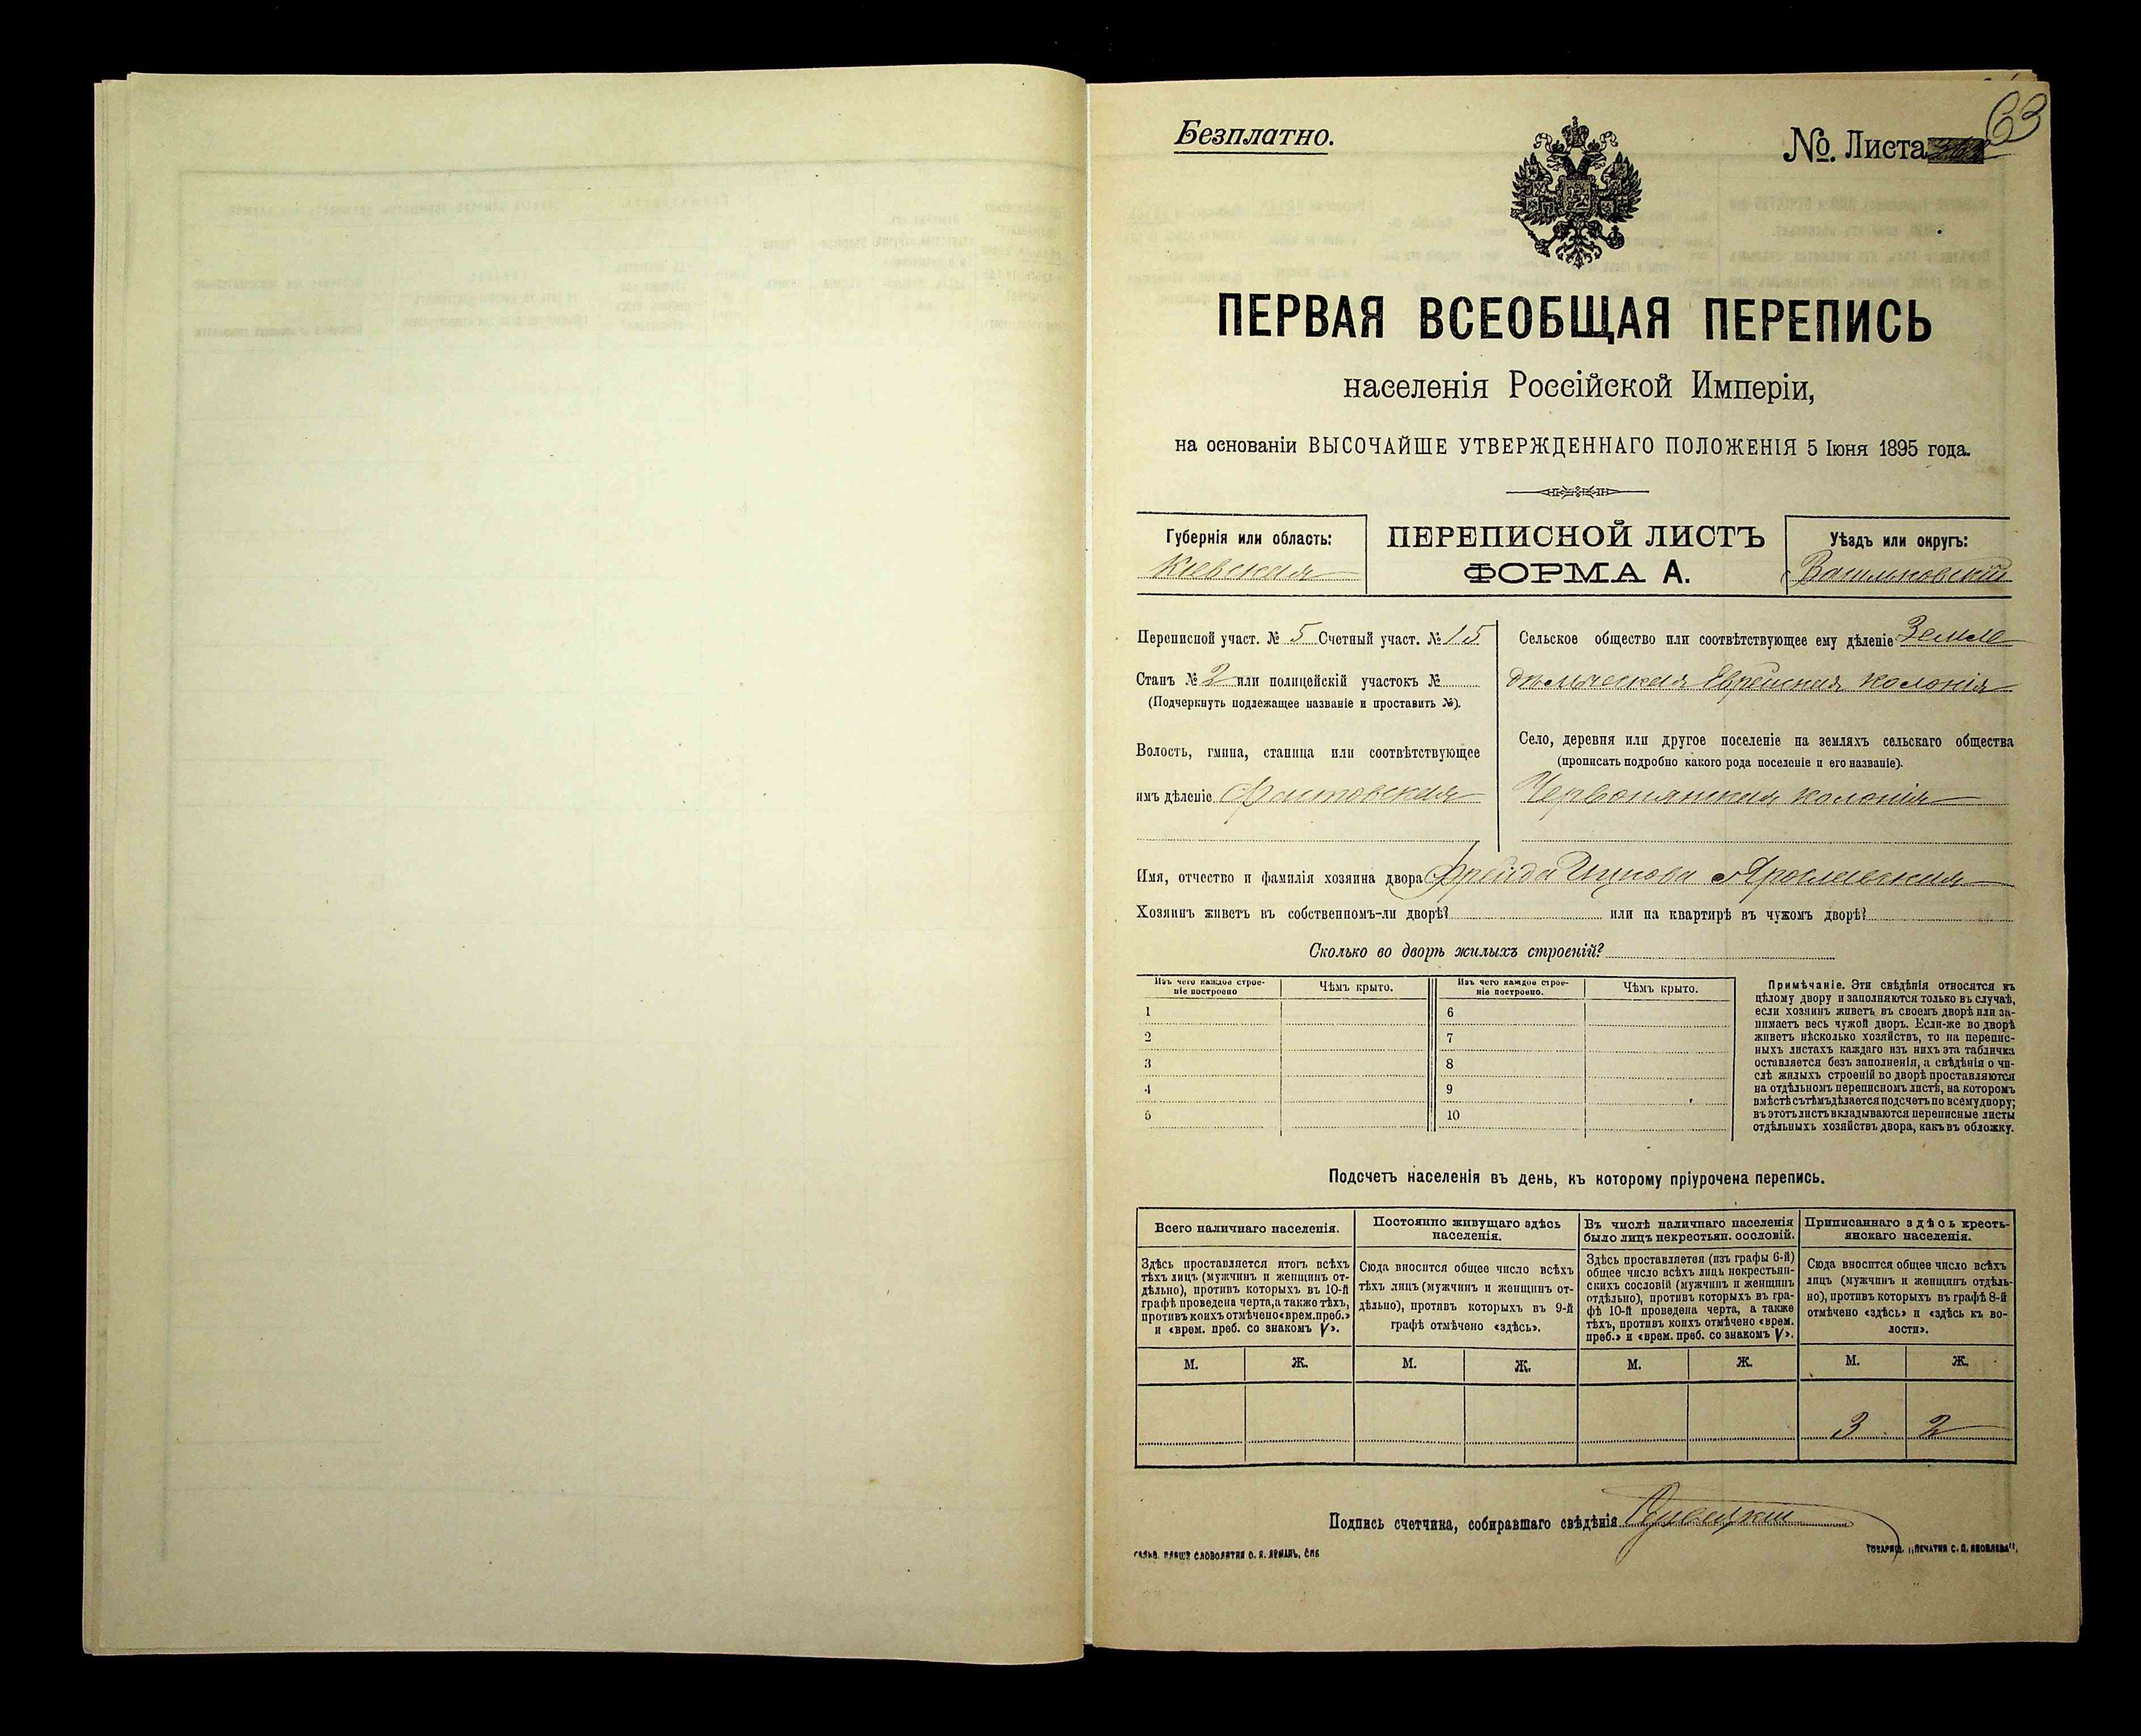 Безплатно.
№. Листа 63
ПЕРВАЯ ВСЕОБЩАЯ ПЕРЕПИСЬ
населенія Россійской Имперіи,
на основаніи ВЫСОЧАЙШЕ УТВЕРЖДЕННАГО ПОЛОЖЕНІЯ 5 Іюня 1895 года.
Губернія или область:
Кіевская
ПЕРЕПИСНОЙ ЛИСТЪ
ФОРМА А.
Уѣздъ или округъ:
Васильковскій
Переписной участ. № 5 Счетный участ. № 15
Станъ № 2 или полицейскій участокъ №
(Подчеркнуть подлежащее названіе и проставить №).
Волость, гмина, станица или соотвѣтствующее
имъ дѣленіе Фастовская
Сельское общество или соотвѣтствующее ему дѣленіе Земле
дѣльческая Еврейская колонія
Село, деревня или другое поселеніе на земляхъ сельскаго общества
(прописать подробно какого рода поселеніе и его названіе).
Червонянская колонія
Имя, отчество и фамилія хозяина двора Фрейда Ицкова Ярошевская
Хозяинъ живетъ въ собственномъ-ли дворѣ? или на квартирѣ въ чужомъ дворѣ?
Сколько во дворѣ жилыхъ строеній?
Изъ чего каждое строе-
ніе построено
Чѣмъ крыто.
Изъ чего каждое строе-
ніе построено.
Чѣмъ крыто.
1 6
2 7
3 8
4 9
5 10
Примѣчаніе. Эти свѣдѣнія относятся къ
цѣлому двору и заполняются только въ случаѣ,
если хозяинъ живетъ въ своемъ дворѣ или за-
нимаетъ весь чужой дворъ. Если-же во дворѣ
живетъ нѣсколько хозяйствъ, то на перепис-
ныхъ листахъ каждаго изъ нихъ эта табличка
оставляется безъ заполненія, а свѣдѣнія о чи-
слѣ жилыхъ строеній во дворѣ проставляются
на отдѣльномъ переписномъ листѣ, на которомъ
вмѣстѣ съ тѣмъ дѣлается подсчетъ по всему двору;
въ этотъ листъ вкладываются переписные листы
отдѣльныхъ хозяйствъ двора, какъ въ обложку.
Подсчетъ населенія въ день, къ которому пріурочена перепись.
Всего наличнаго населенія.
Здѣсь проставляется итогъ всѣхъ
тѣхъ лицъ (мужчинъ и женщинъ от-
дѣльно), противъ которыхъ въ 10-й
графѣ проведена черта, а также тѣхъ,
противъ коихъ отмѣчено «врем. преб.»
и «врем. преб. со знакомъ V».
Постоянно живущаго здѣсь
населенія.
Сюда вносится общее число всѣхъ
тѣхъ лицъ (мужчинъ и женщинъ от-
дѣльно), противъ которыхъ въ 9-й
графѣ отмѣчено «здѣсь».
Въ числѣ наличнаго населенія
было лицъ некрестьян. сословій.
Здѣсь проставляется (изъ графы 6-й)
общее число всѣхъ лицъ некрестьян-
скихъ сословій (мужчинъ и женщинъ
отдѣльно), противъ которыхъ въ гра-
фѣ 10-й проведена черта, а также
тѣхъ, противъ коихъ отмѣчено «врем.
преб.» и «врем. преб. со знакомъ V».
Приписаннаго здѣсь кресть-
янскаго населенія.
Сюда вносится общее число всѣхъ
лицъ (мужчинъ и женщинъ отдѣль-
но), противъ которыхъ въ графѣ 8-й
отмѣчено «здѣсь» и «здѣсь къ во-
лости».
М. Ж. М. Ж. М. Ж. М. Ж.
3 2
Подпись счетчика, собиравшаго свѣдѣнія
ТОВАРИЩ. „ПЕЧАТНЯ С. П. ЯКОВЛЕВА",